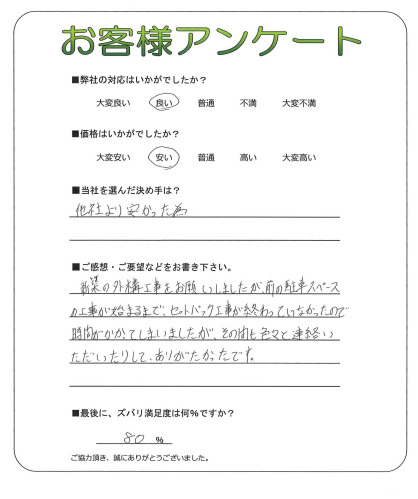 お客様アンケート
■弊社の対応はいかがでしたか？
大変良い 良い 普通 不満 大変不満
■価格はいかがでしたか？
大変安い 安い 普通 高い 大変高い
■当社を選んだ決め手は？
他社より安かった為
■ご感想・ご要望などをお書き下さい。
新築の外構工事をお願いしましたが、前の駐車スペース
の工事が始まるまで、セットバック工事が終わっていなかったので
時間がかかってしまいましたが、その間も色々と連絡い
ただいたりして、ありがたかったです。
■最後に、ズバリ満足度は何%ですか？
80 %
ご協力頂き、誠にありがとうございました。